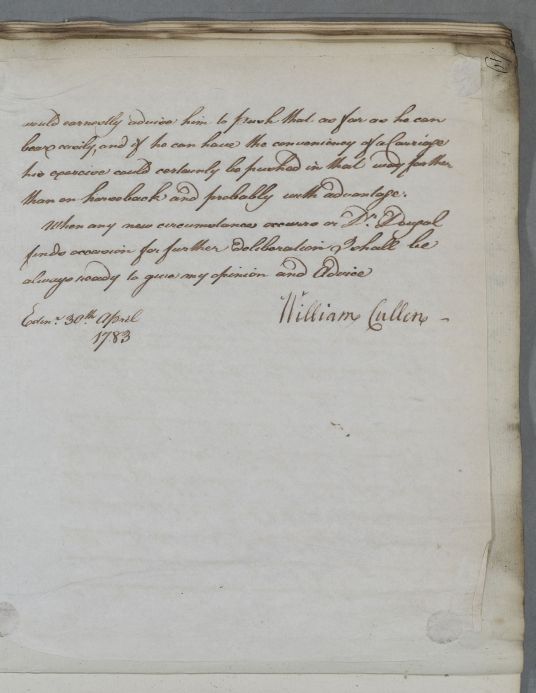 would earnestly advise him to push that as far as he can
bear easily, and if he can have the conveniency of a Carriage
his exercise could certainly be pushed in that way further
than on horseback and probably with advantage.
When any new circumstance occurrs or Dr. Dougal
finds occasion for further deliberation I shall be
always ready to give my opinion and Advice
William Cullen
Edinr. 30th April
1783